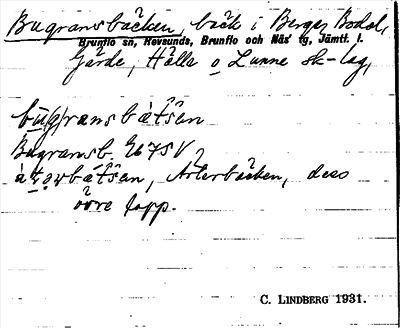 Bugransbäcken, bäck i Berge, Bodal,
Brunflo sn, Revsunds, Brunflo och Näs' tg, Jämtl. l.
Gärde, Hälla o Lunne sk-lag,
Bugransb. GK 75V
Återbäcken, dess
övre lopp.
C. LINDBERG 1931.